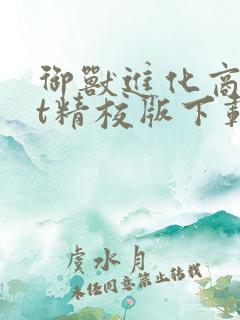 御獸進化商
t精校版下載
虞水月
未经同意禁止转载